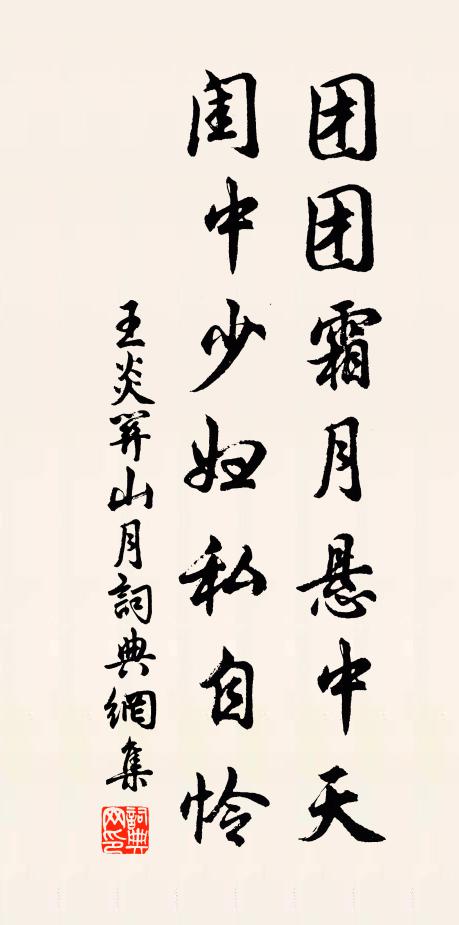 团团霜月悬中天
闺中少妇私自怜
王炎关山月詞典網集
詞典网印